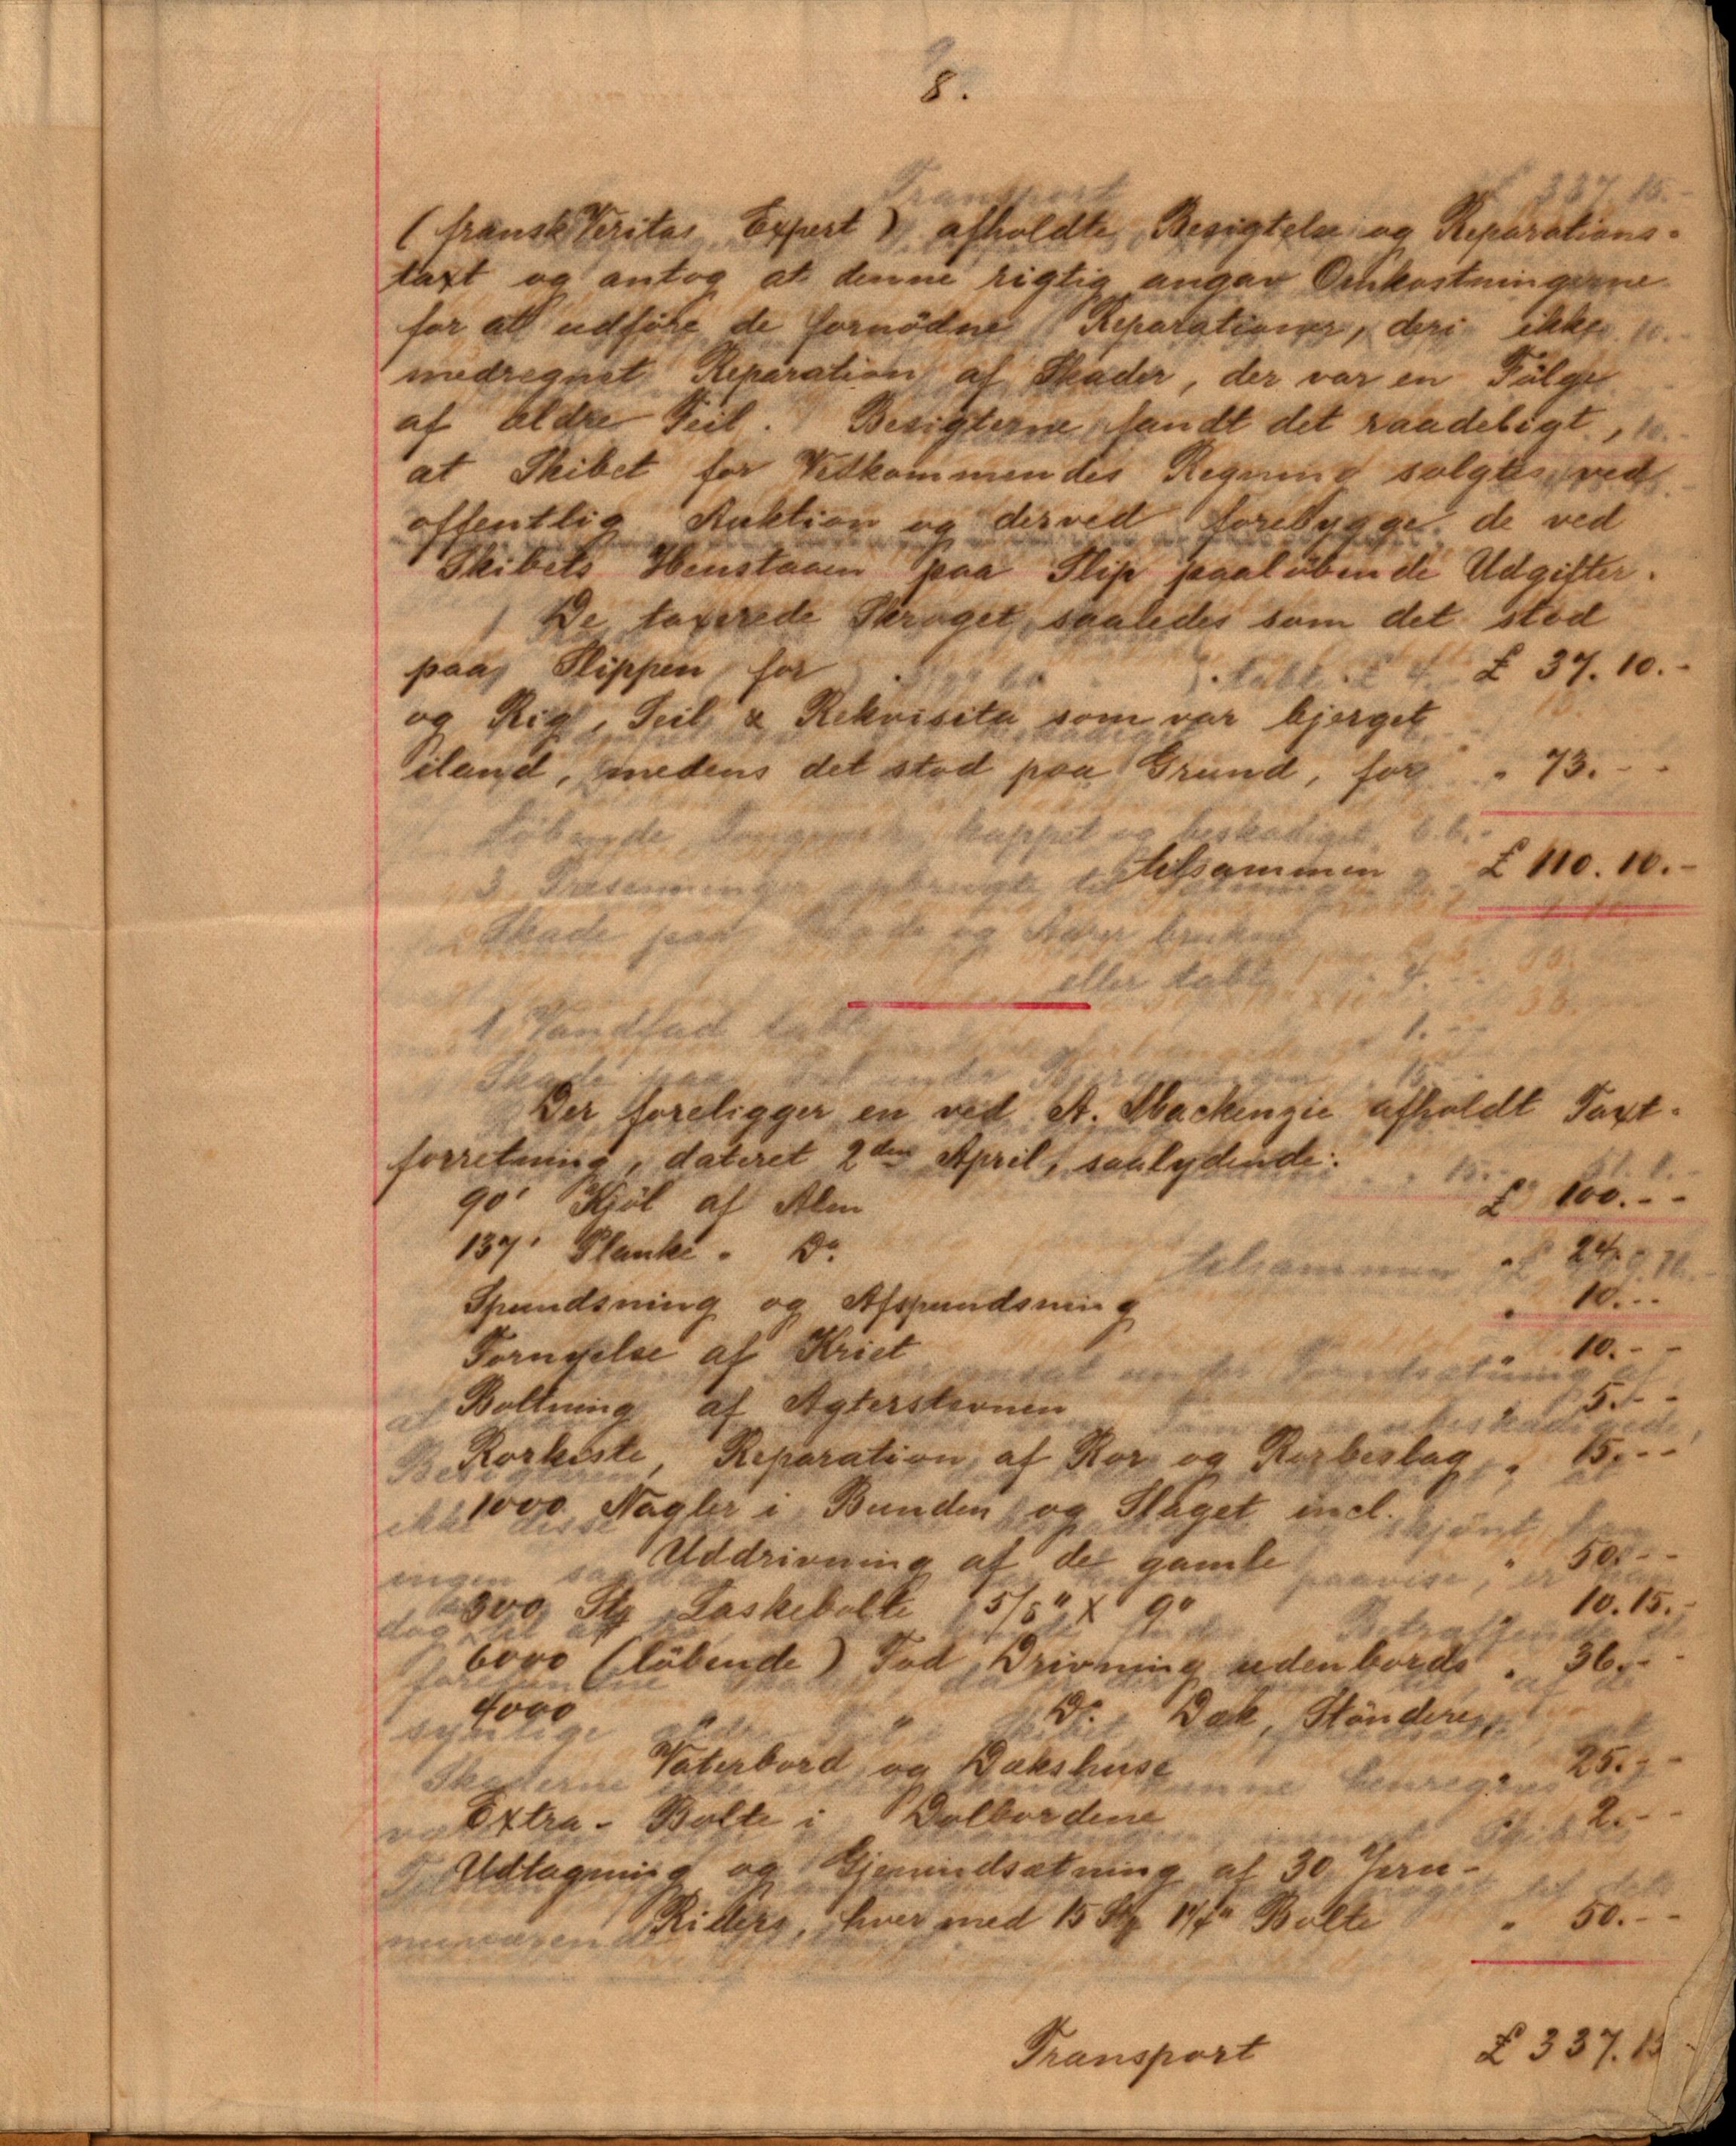 8.
(fransk Veritas Expert) afholdte Besigtelse og Reparations-
taxt og antog at denne rigtig angav Omkostningerne
for at udføre de fornødne Reparationer, deri ikke
medregnet Reparation af Skader, der var en Følge
af ældre Feil. Besigterne fandt det raadeligt,
at Skibet for Vedkommendes Regning solgtes ved
offentlig Auktion og derved forebygge de ved
Skibets Henstaaen paa Slip paaløbende Udgifter.
De taxerede Skroget saaledes som det stod
paa Slippen for £ 37.10.-
og Rig, Seil & Rekvisita som var bjerget
iland, medens det stod paa Grund, for " 73.--
tilsammen £ 110.10.-
Der foreligger en ved A. Mackenzie afholdt Taxt-
forretning, dateret 2den April, saalydende:
90' Kjøl af Alm £ 100.--
137' Planke " Do. " 24.
Spundsning og Afspundsning " 10.--
Fornyelse af Kriet " 10.--
Boltning af Agterstevnen " 5.--
Rorkiste, Reparation af Ror og Rorbeslag " 15.--
1000 Nagler i Bunden og Slaget incl.
Uddrivning af de gamle " 50.--
300 Stk Laskebolte 5/8" X 9" " 10.15.-
6000 (løbende) Fod Drivning udenbords " 36.--
4000 " " Do. Dæk, Støndere,
Vaterbord og Dækshuse " 25.--
Extra-Bolte i Dolbordene " 2.--
Udtagning og Gjenindsætning af 30 Jern-
Riders, hver med 15 Stk 1 1/4" Bolte " 50.--
Transport £ 337.15